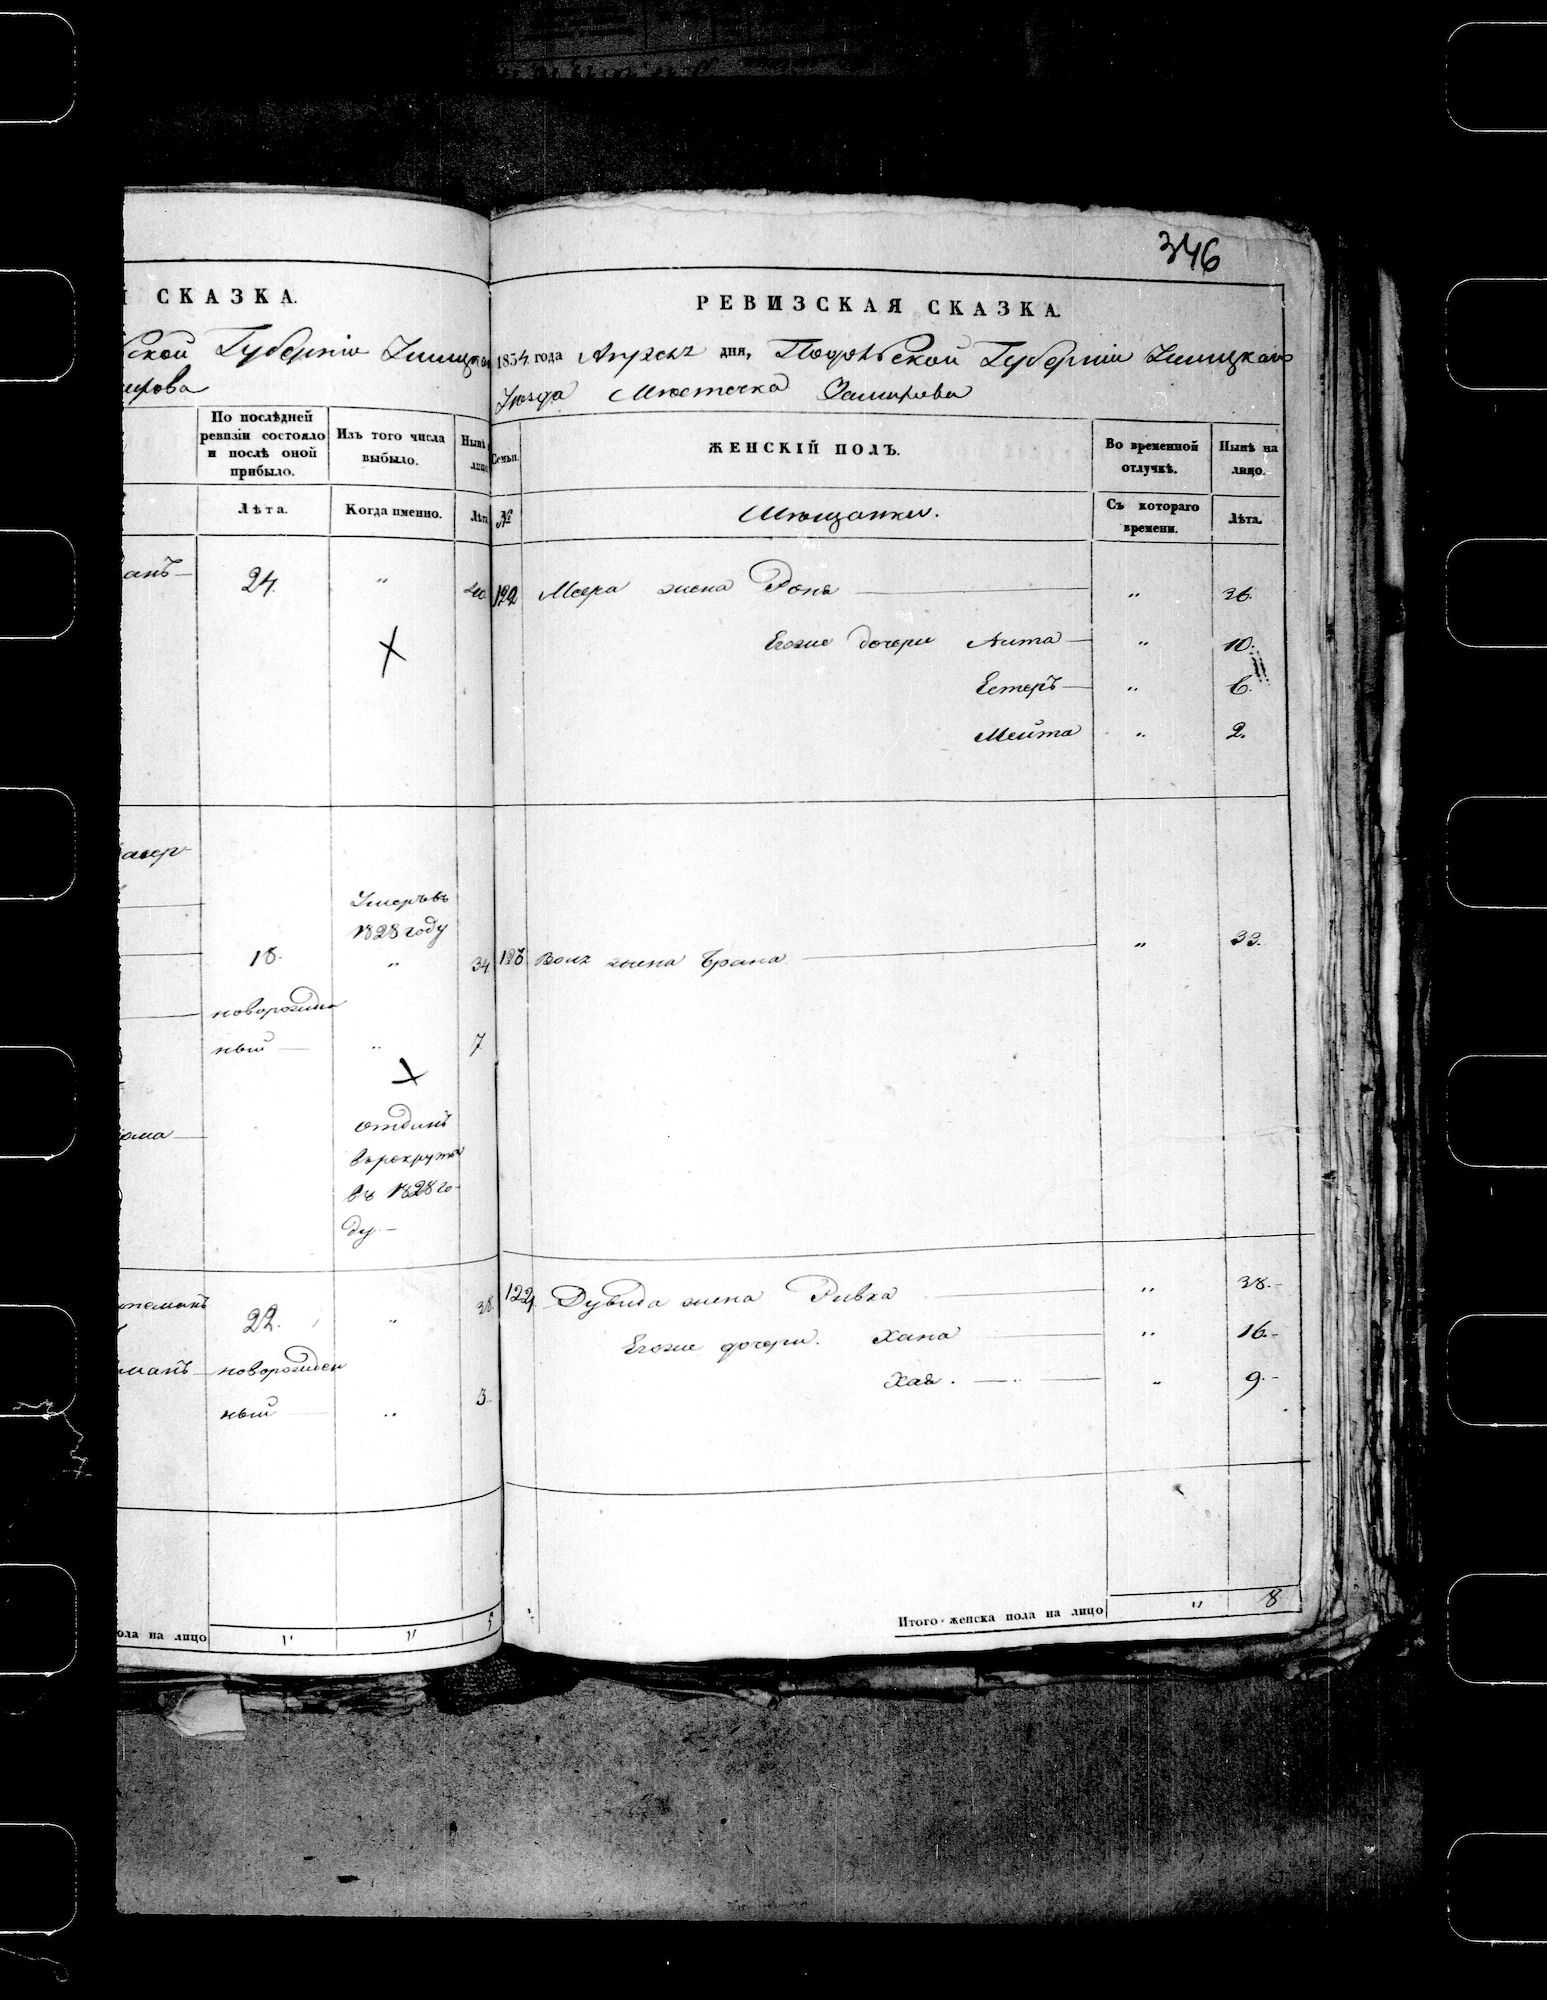 346
СКАЗКА.
ской Губерніи
мирова
По послѣдней ревизіи состояло и послѣ оной прибыло.
Изъ того числа выбыло.
Нынѣ
Лѣта.
Когда именно.
Лѣта
анъ —
24.
"
40.
Умеръ въ
1828 году
18.
"
34
новорожден
ный —
"
7
отданъ
въ рекруты
въ 1828 го-
ду —
22.
"
38.
манъ — новорожден
ный —
"
3.
пола на лицо
"
"
РЕВИЗСКАЯ СКАЗКА.
1854. года Апрѣля дня, Подольской Губерніи Ушицкаго
Уѣзда Мѣстечка Замирова
Семьи.
ЖЕНСКІЙ ПОЛЪ.
Во временной отлучкѣ.
Нынѣ на лицо.
№
Мѣщанки.
Съ котораго времени.
Лѣта.
122 Меера жена — " 36.
Егоже дочери — " 10.
Естеръ — " 6.
" 2.
123 жена Брана — " 33.
124 Дувида жена Ривка " 38.-
Егоже дочери. Хана — " 16.-
Хая. — " 9.-
Итого женска пола на лицо " 8